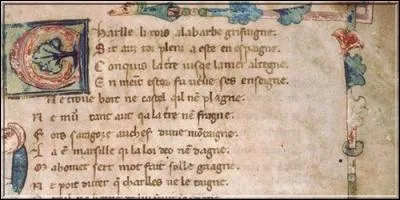 Charlle li rois a la barbe grifaigne.
Sis anz toz plens a este en espaigne.
Conquis la tre iusqe la mer alteigne.
En meint estor fu veue ses enseigne.
Ne trove borc ne castel qil nẽ plagne.
Ne mur tant aut qa la tre nẽ fragne.
Fors saragoze au chef dune mõtaigne.
La ẽ marsille qi la loi deo nẽ dagne.
Mahomet sert mot fait folle gaagne.
Ne poit durer qe charlles ne le taigne.